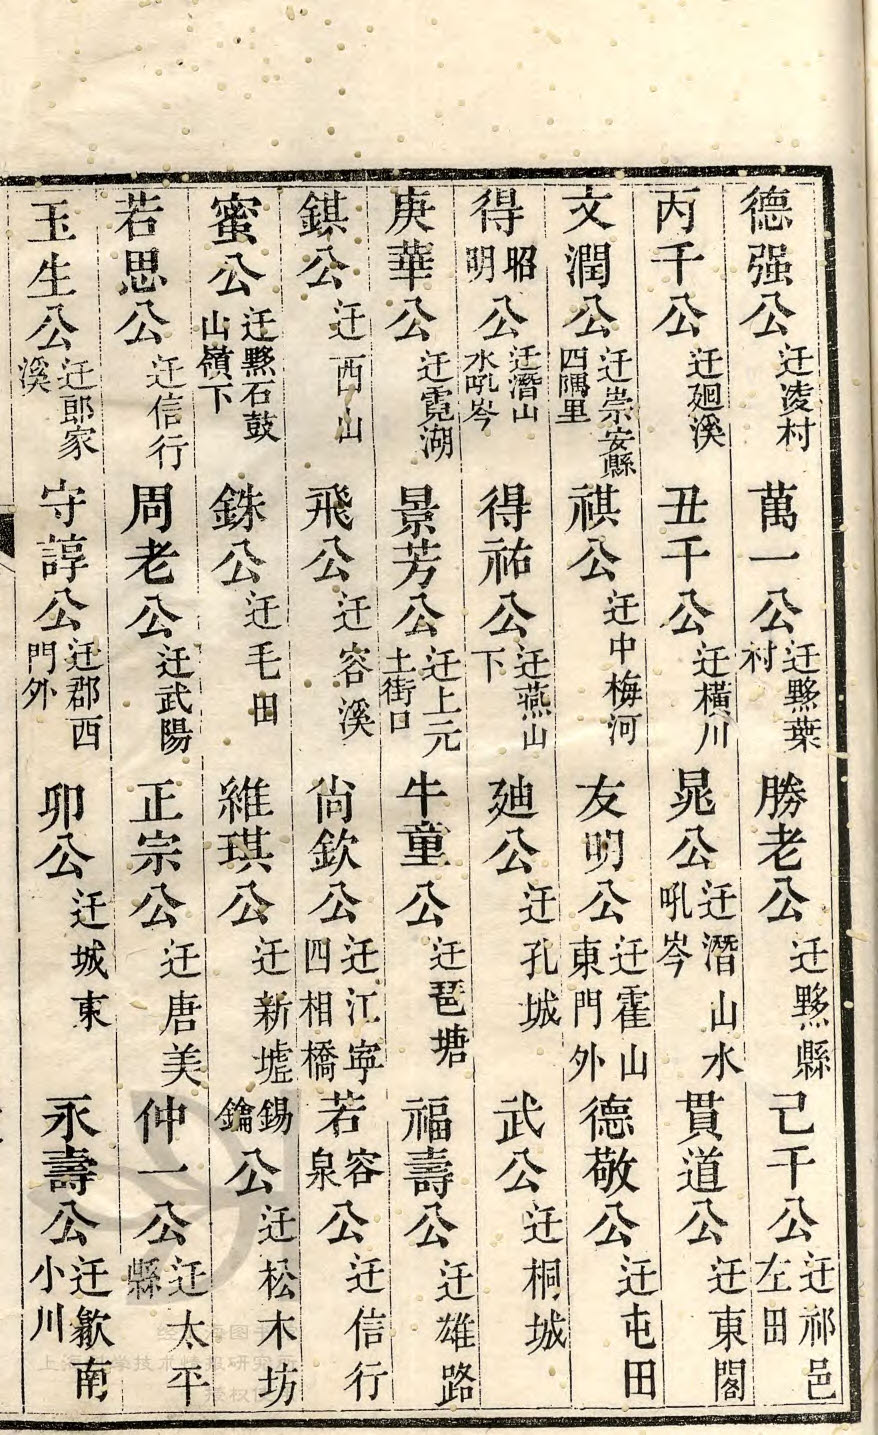 德强公迁淩村　萬一公迁黟葉村　勝老公迁黟縣　己千公迁祁邑左田
丙千公迁廻溪　丑千公迁橫川　晁公迁潛山水吼岑　貫道公迁東閣
文潤公迁崇安縣四隅里　祺公迁中梅河　友明公迁霍山東門外　德敬公迁屯田
得昭明公迁潛山水吼岑　得祐公迁燕山下　廸公迁孔城　武公迁桐城
庚華公迁霓湖　景芳公迁上元土街口　牛童公迁琶塘　福壽公迁雄路
錤公迁西山　飛公迁容溪　尙欽公迁江寧四相橋　若容泉公迁信行
蜜公迁黟石鼓山嶺下　銖公迁毛田　維琪公迁新墟　錫鑰公迁松木坊
若思公迁信行　周老公迁武陽　正宗公迁唐美　仲一公迁太平縣
玉生公迁郎家溪　守諄公迁郡西門外　卯公迁城東　永壽公迁歙南小川